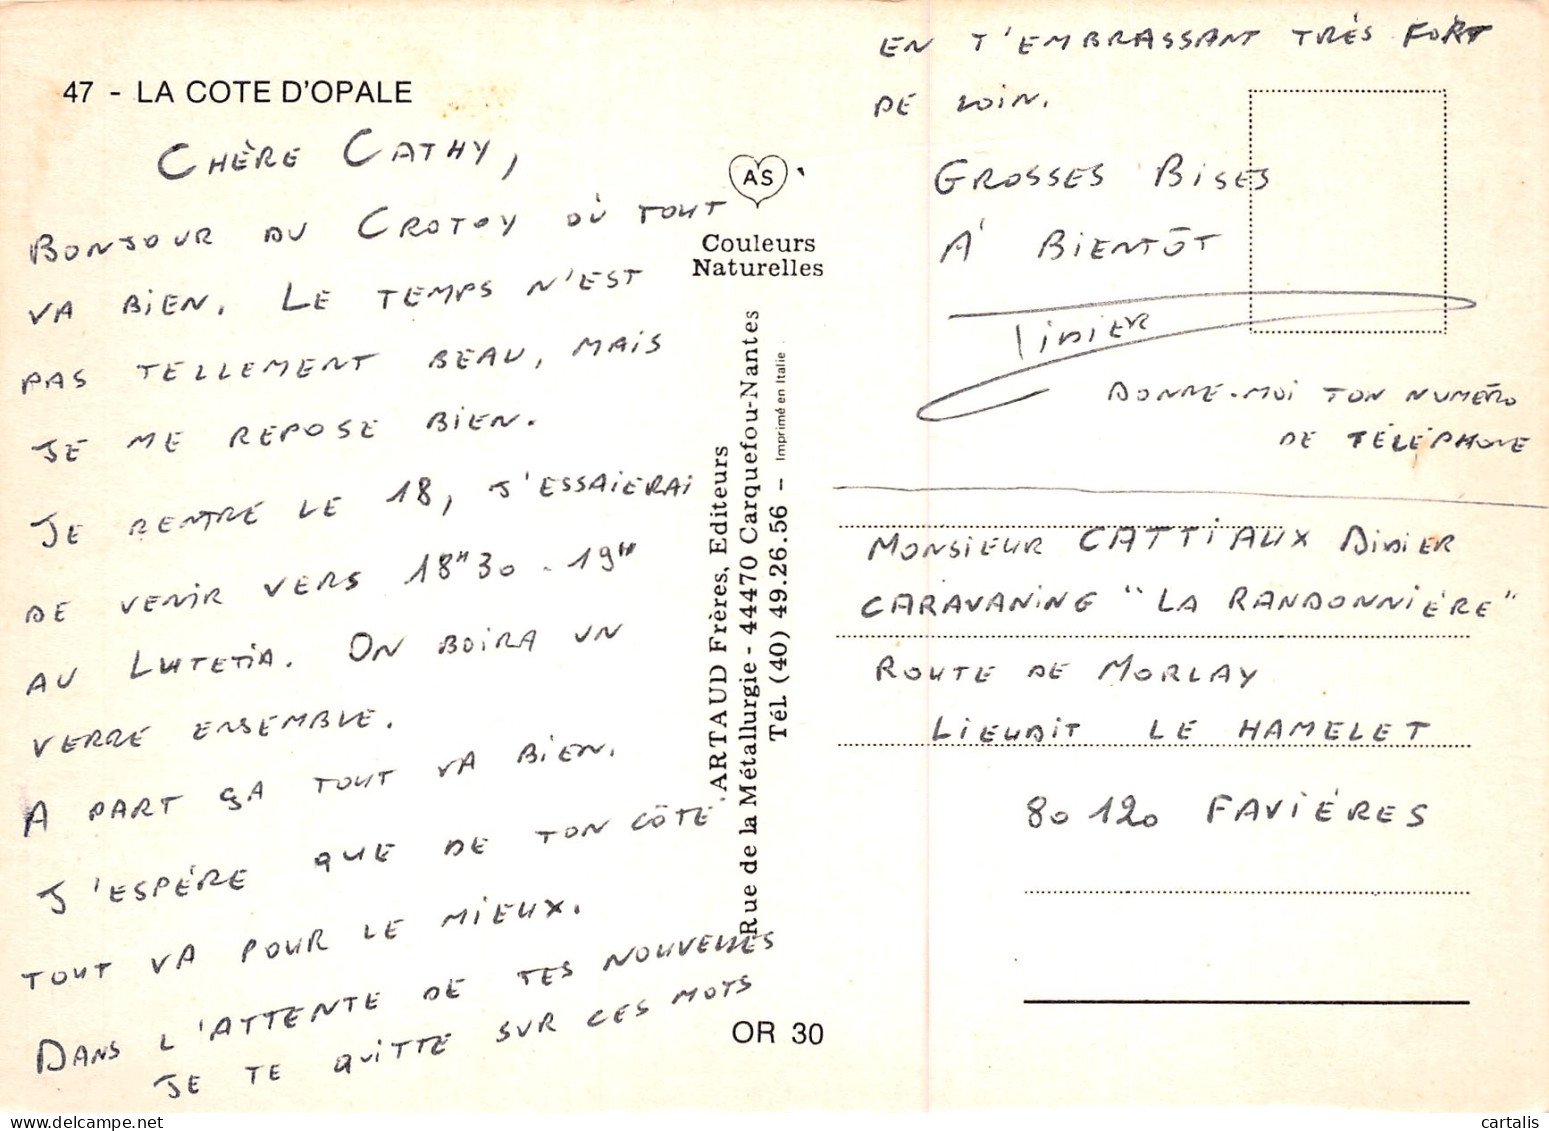 47 - LA COTE D'OPALE
CHÈRE CATHY,
BONJOUR DU CROTOY OÙ TOUT
VA BIEN. LE TEMPS N'EST
PAS TELLEMENT BEAU, MAIS
JE ME REPOSE BIEN.
JE RENTRE LE 18, J'ESSAIERAI
DE VENIR VERS 18H30 - 19H
AU LUTETIA. ON BOIRA UN
VERRE ENSEMBLE.
A PART ÇA TOUT VA BIEN.
J'ESPÉRE QUE DE TON CÔTÉ
TOUT VA POUR LE MIEUX.
DANS L'ATTENTE DE TES NOUVELLES
JE TE QUITTE SUR CES MOTS
EN T'EMBRASSANT TRÈS FORT
DE LOIN.
GROSSES BISES
À BIENTÔT
DIDIER
DONNE-MOI TON NUMÉRO
DE TÉLÉPHONE
AS
Couleurs
Naturelles
ARTAUD Frères, Editeurs
Rue de la Métallurgie - 44470 Carquefou-Nantes
Tél. (40) 49.26.56 - Imprimé en Italie
OR 30
MONSIEUR CATTIAUX DIDIER
CARAVANING "LA RANDONNIÉRE"
ROUTE DE MORLAY
LIEUDIT LE HAMELET
80120 FAVIÉRES
cartalis